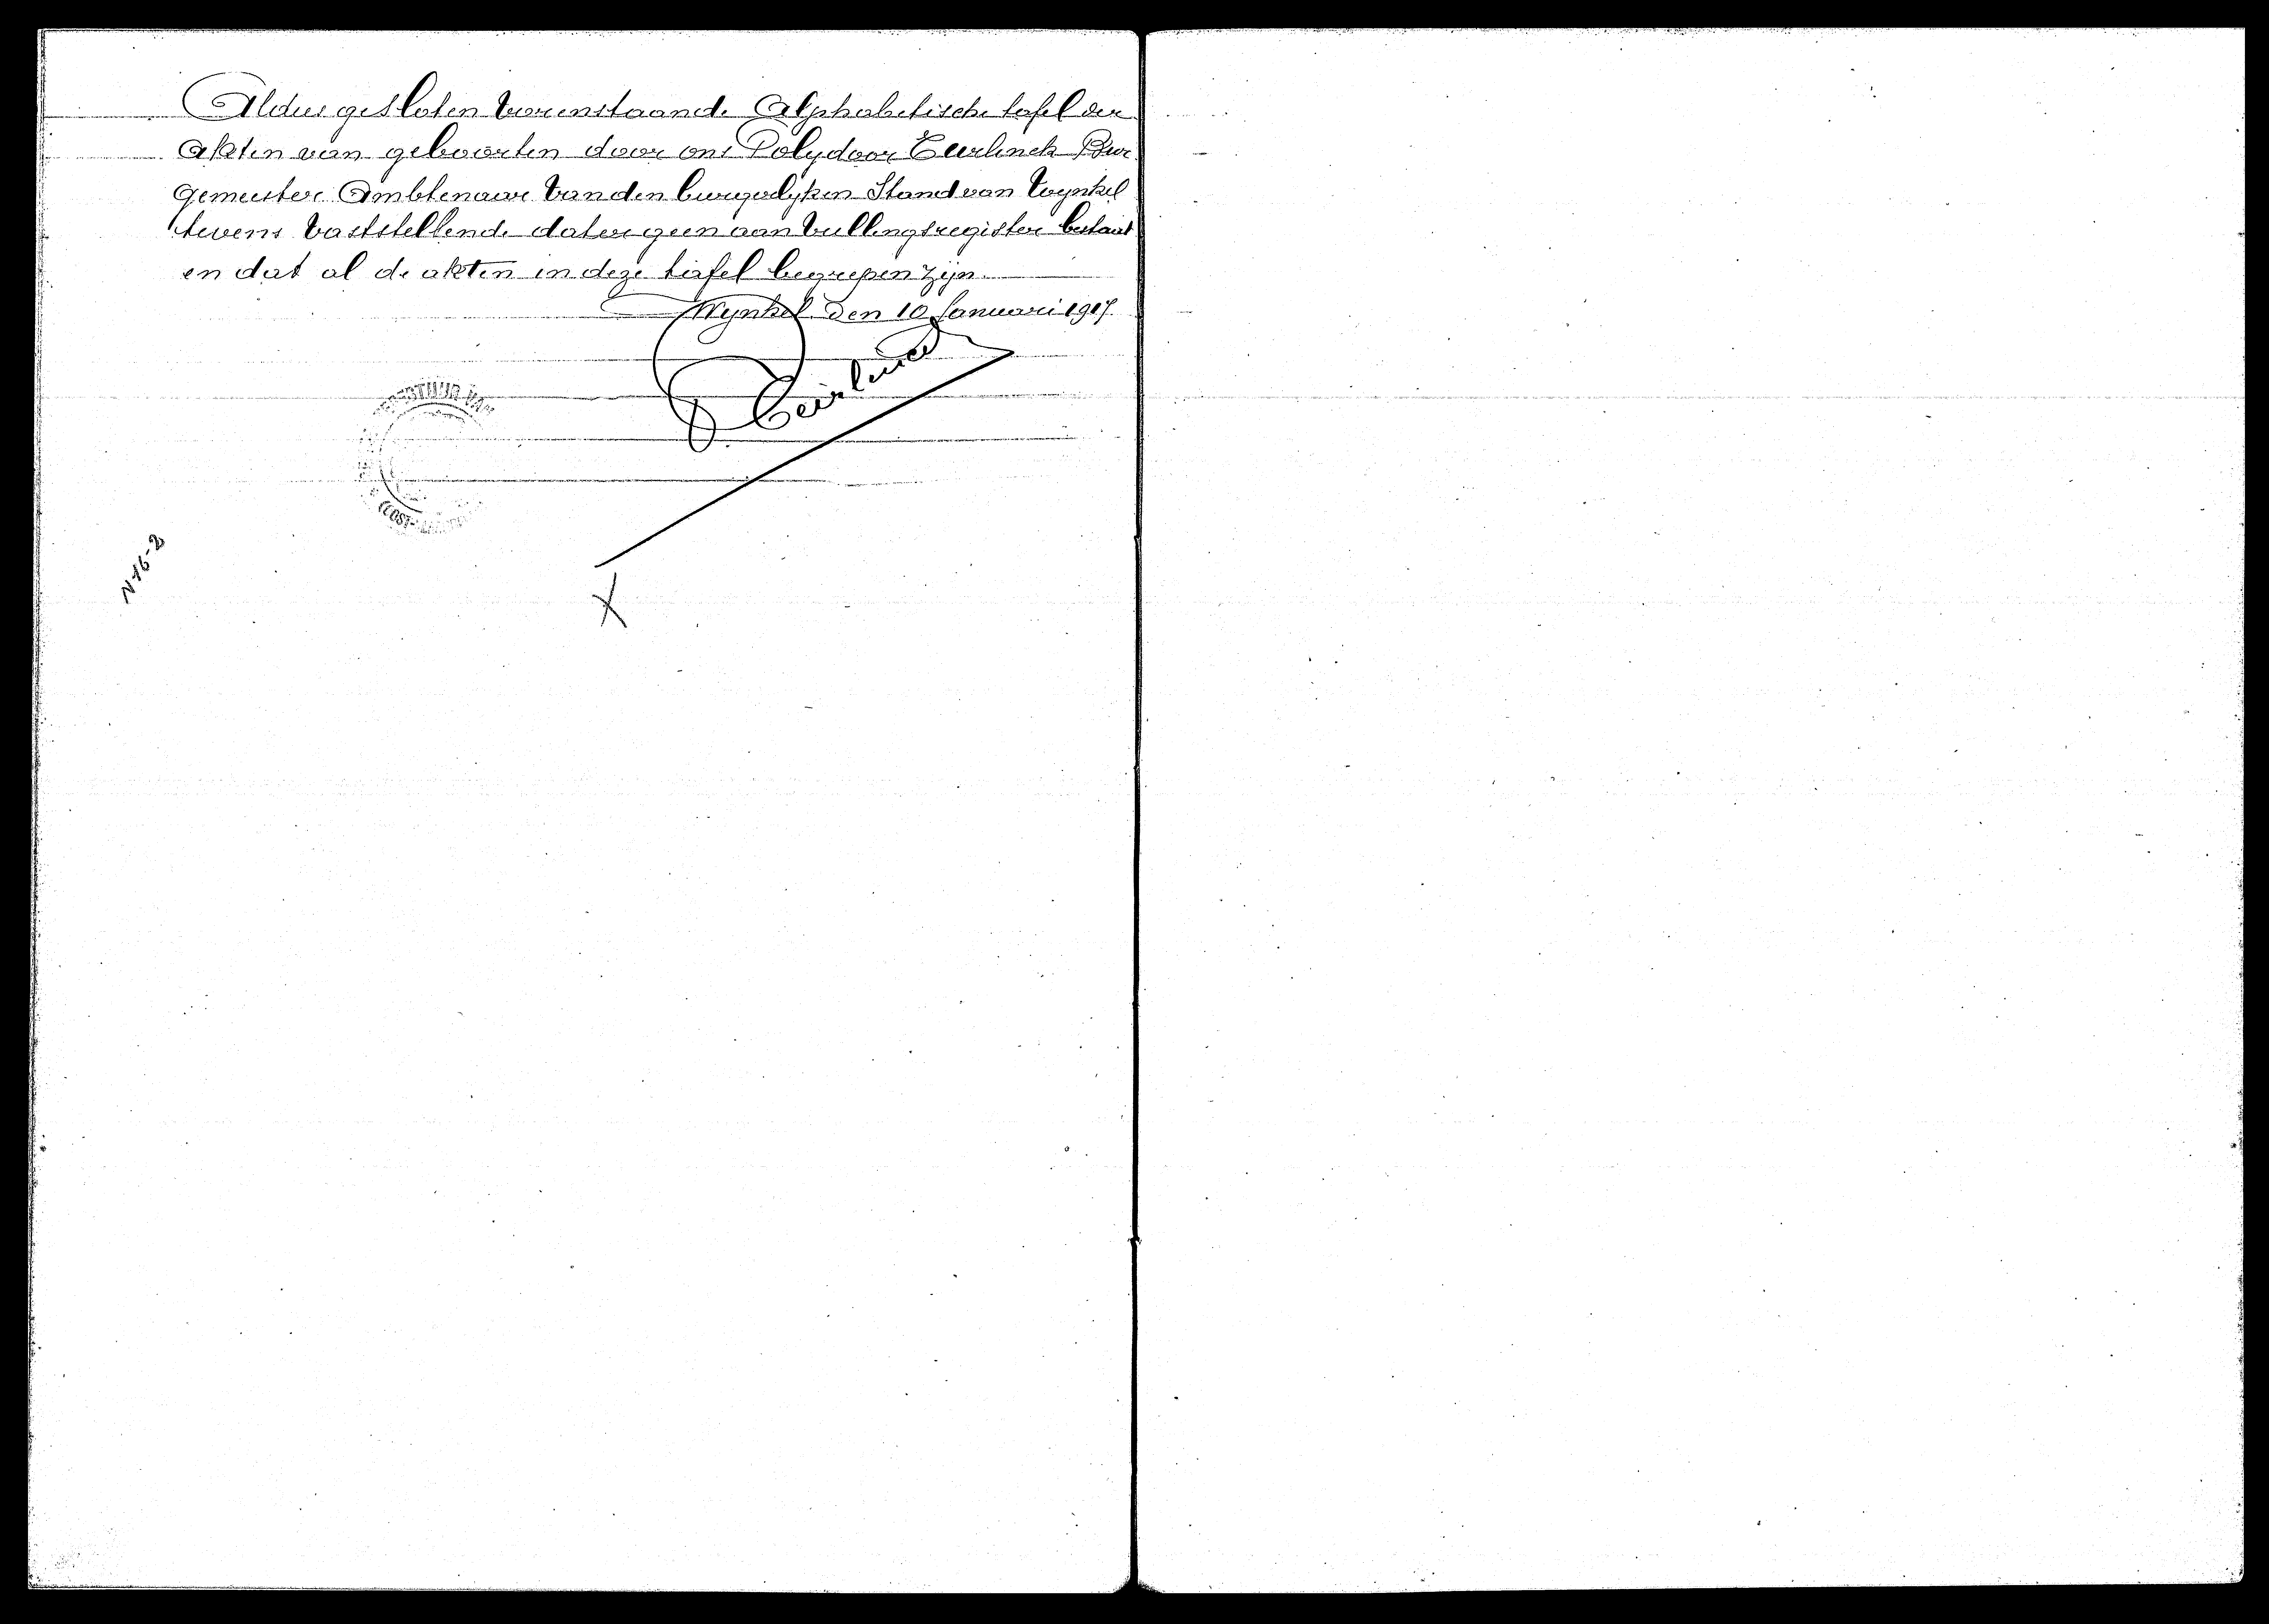 Aldus gesloten vorenstaande Alphabetische tafel der
akten van geboorten door ons Polydoor Eeerlinck Bur
gemeester Ambtenaar van den burgerlyken Stand van Wynkel
tevens vaststellende dat er geen aanvullingsregister bestaat
en dat al de akten in deze tafel begrepen zyn.
Wynkel den 10 Januari 1917.
N16-2
X